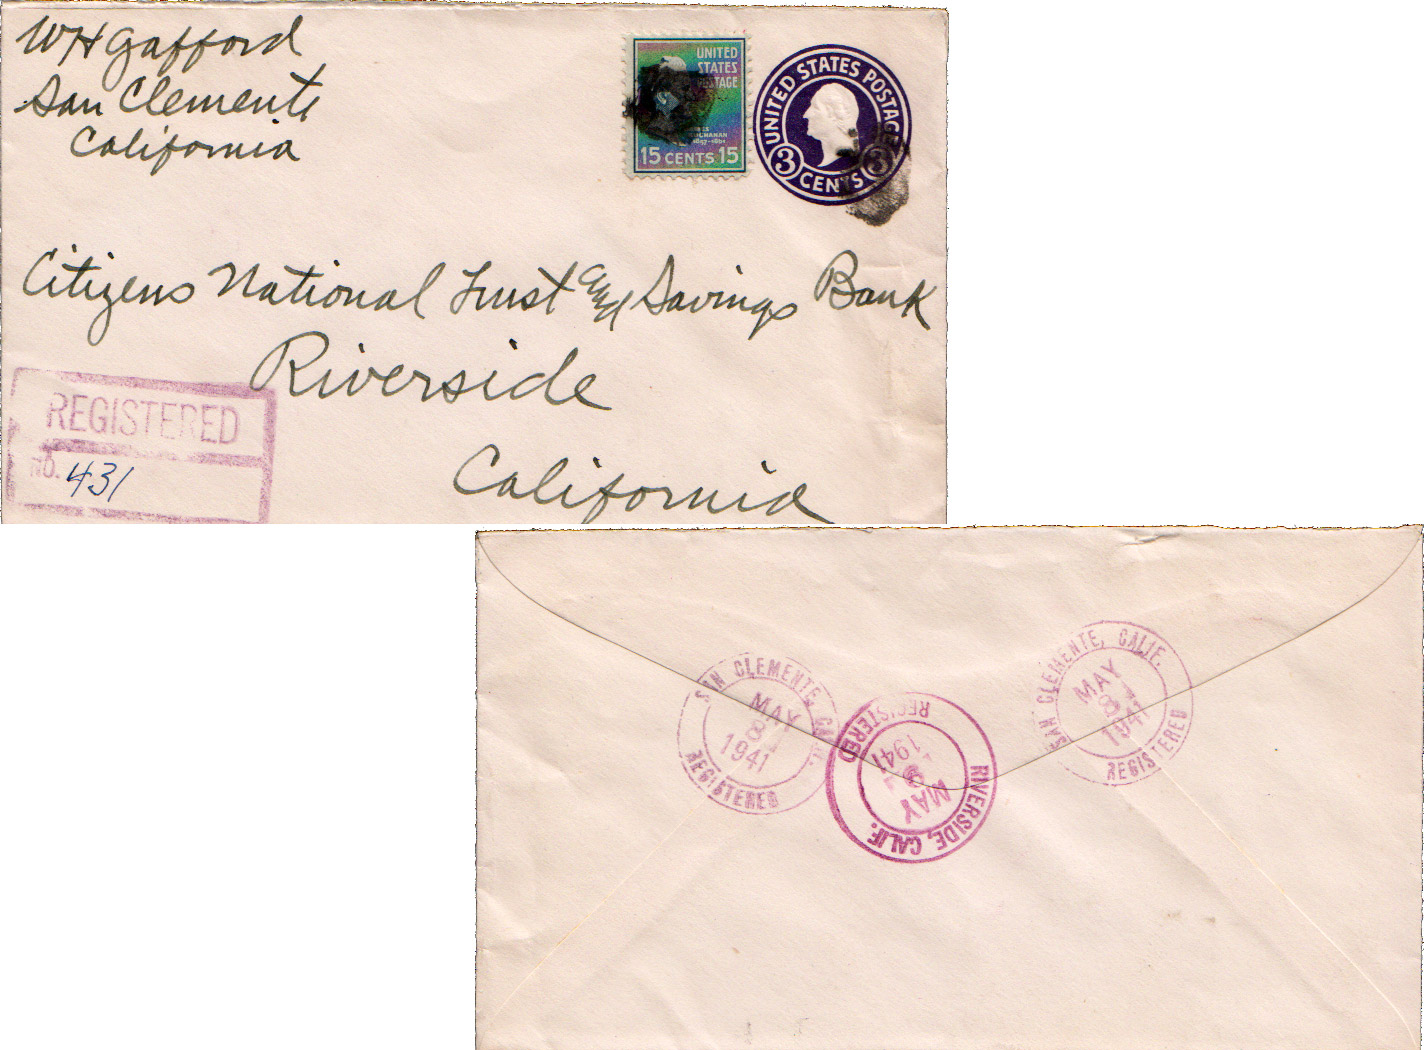 WH Gafford
San Clemente
California
UNITED
STATES
POSTAGE
BUCHANAN
15 CENTS 15
UNITED STATES POSTAGE
3 CENTS 3
Citizens National Trust and Savings Bank
Riverside
California
REGISTERED
NO. 431
SAN CLEMENTE, CALIF.
MAY
8
1941
REGISTERED
RIVERSIDE, CALIF.
MAY
9
1941
REGISTERED
SAN CLEMENTE, CALIF.
MAY
8
1941
REGISTERED